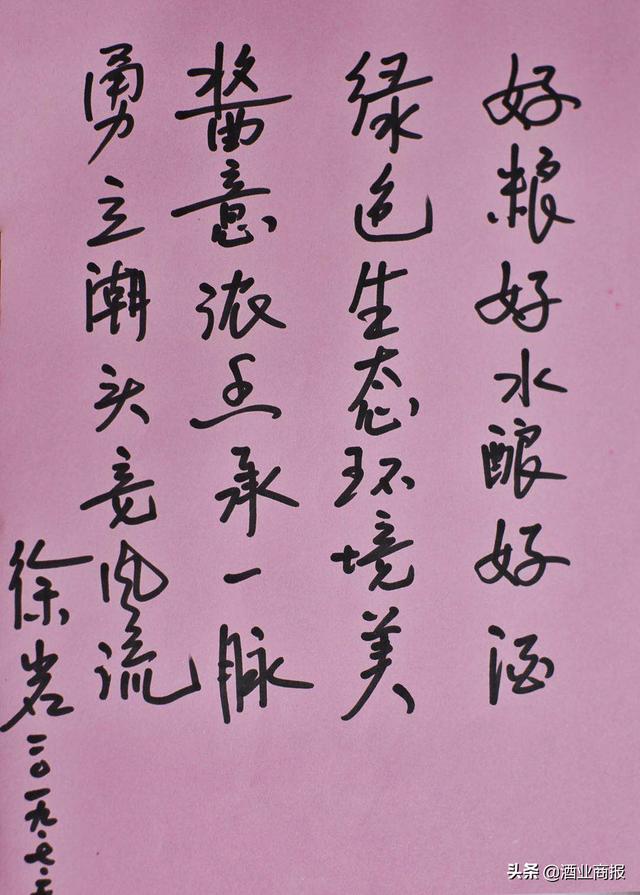 好粮好水酿好酒
绿色生态环境美
酱意浓承一脉
勇立潮头竞风流
徐岩
二〇一九.七.
头条 @酒业商报